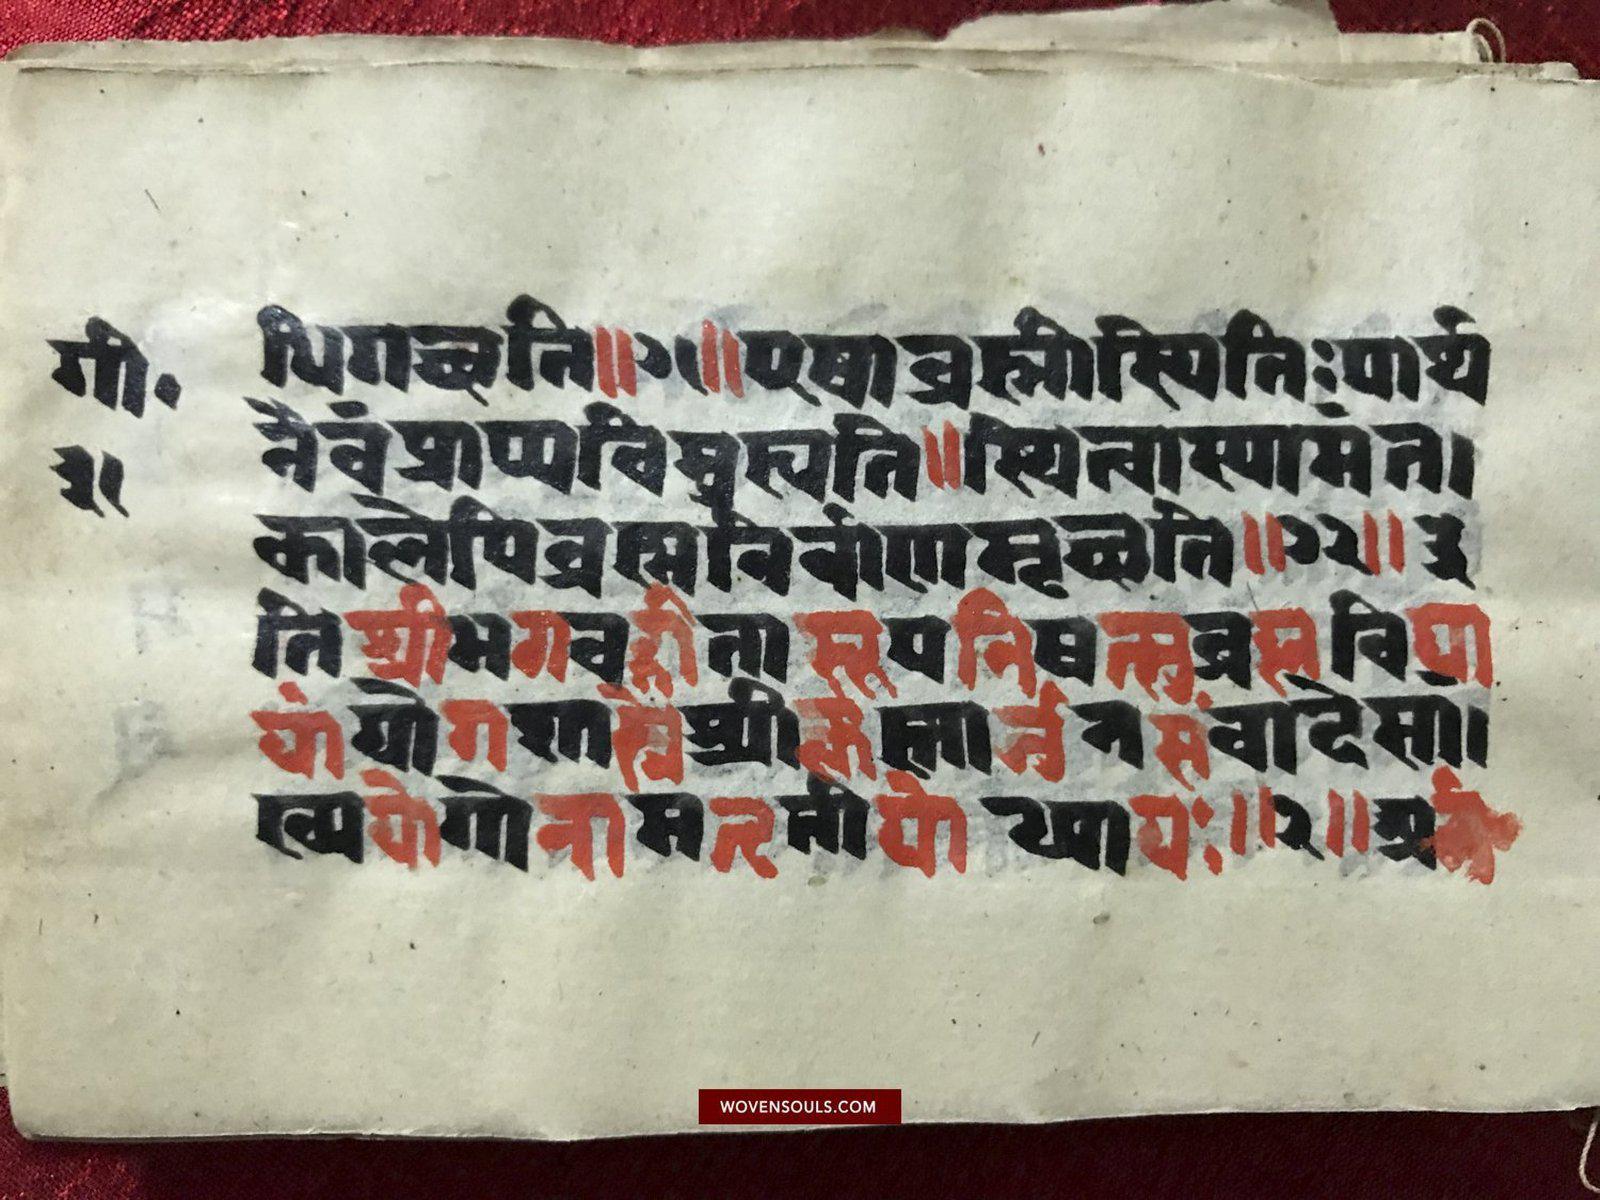 गी॰ धिगच्छति॥७१॥एषाब्रह्मीस्थितिःपार्थ
३१ नैवंप्राप्यविमुह्यति॥स्थित्वास्यामंत।
कालेपिब्रह्मनिर्वाणमृच्छति॥७२॥इ
तिश्रीभगवद्गीतासूपनिषत्सुब्रह्मविद्या
यांयोगशास्त्रेश्रीकृष्णार्जुनसंवादेसां।
ख्ययोगोनामद्वितीयोध्यायः॥२॥श्री
WOVENSOULS.COM